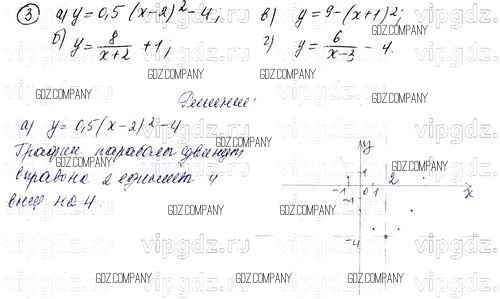 3 а) y = 0,5 (x-2)² - 4,   в) y = 9 - (x+1)²;
б) y = 8/(x+2) + 1,   г) y = 6/(x-3) - 4.
Решение:
а) y = 0,5 (x-2)² - 4
График параболы сдвинут
вправо на 2 единицы и
вниз на 4.
y
1
-1 0 1 2 x
-1
-4
GDZ.COMPANY
vipgdz.ru